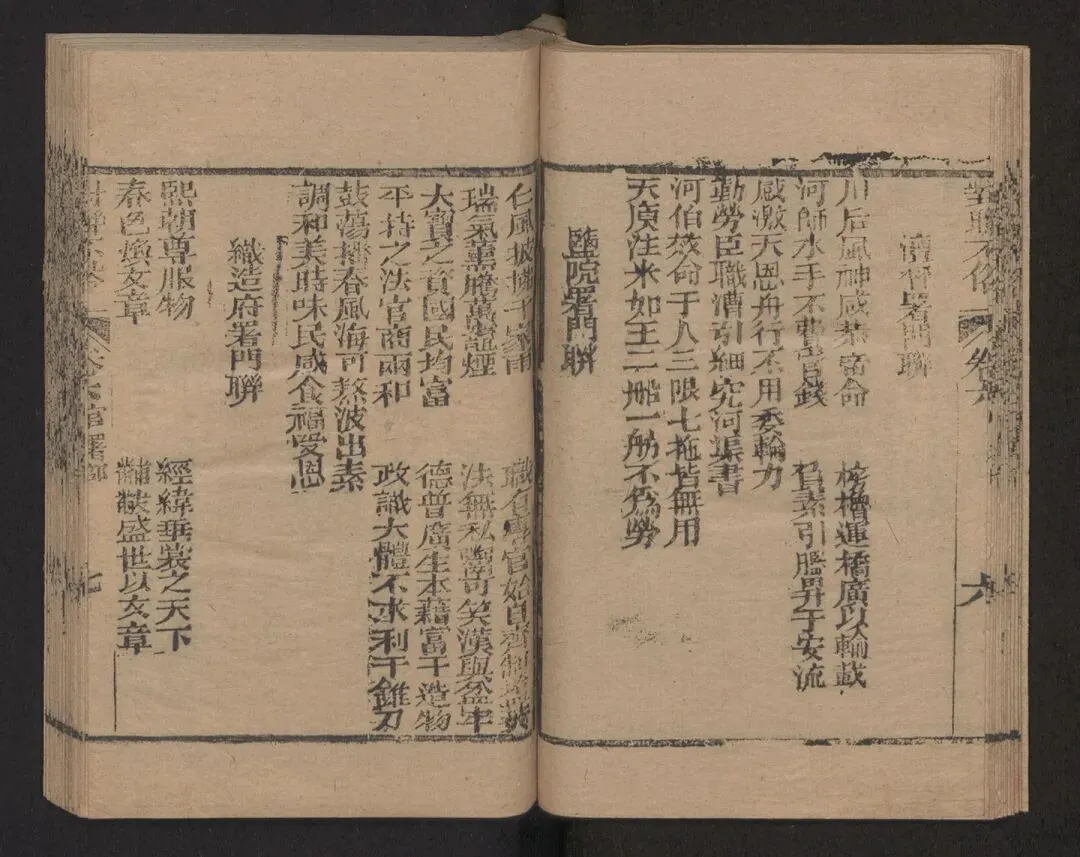 對聯不俗 卷六 六
漕督署門聯
川后風神咸恭啻命
檣運橋廣以輸載
河師水手不費官錢
負素引臘昇于安流
感激天恩舟行不用委輸力
勤勞臣職漕引細究河渠書
河伯效命于人三限七拖皆無用
天庾注米如王二船一舫不為勞
鹽院署門聯
仁風披拂千家雨
瑞氣薰騰萬竈煙
大寶之資國民均富
平持之法官商兩和
鼓蕩播春風海可熬波出素
調和美時味民咸食福受恩
職有專官始自齊
法無私鬻可笑漢與盆牢
德普廣生本藉富于造物
政識大體不求利于錐刀
織造府署門聯
熙朝尊服物
春色煥文章
經緯垂裳之天下
黼黻盛世以文章
卷六 官署部 七